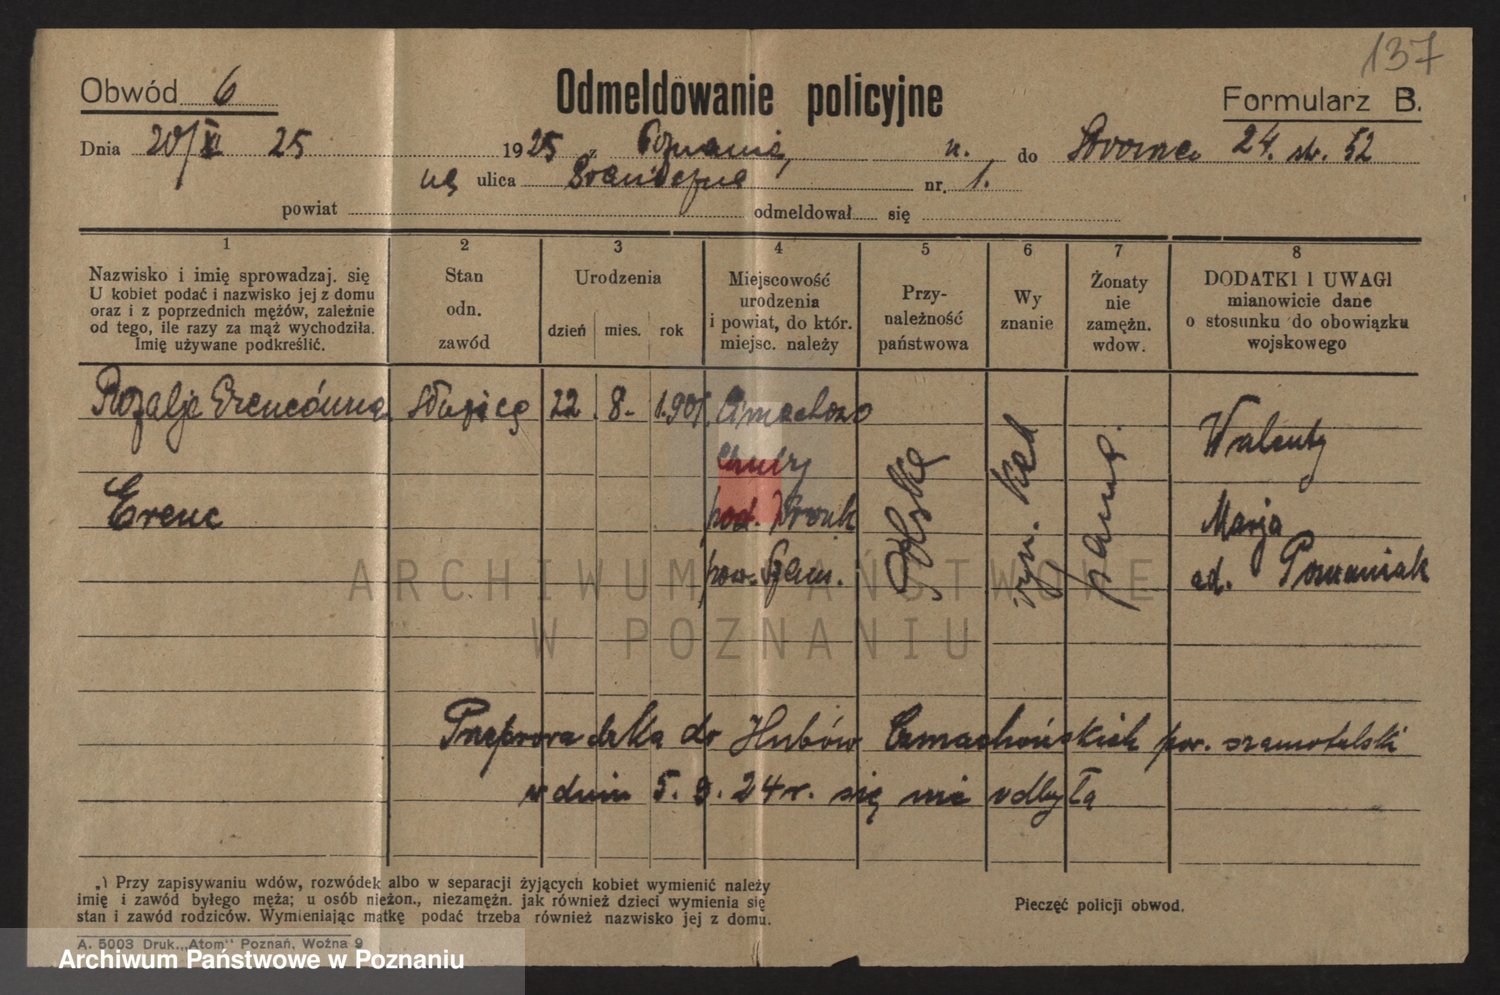 137
Obwód 6
Odmeldowanie policyjne
Formularz B.
Dnia 20/XI 25 1925 z Poznania, n. do 24. str. 52
na ulica nr. 1.
powiat odmeldował się
1 2 3 4 5 6 7 8
Nazwisko i imię sprowadzaj. się
U kobiet podać i nazwisko jej z domu
oraz i z poprzednich mężów, zależnie
od tego, ile razy za mąż wychodziła.
Imię używane podkreślić.
Stan
odn.
zawód
Urodzenia
dzień mies. rok
Miejscowość
urodzenia
i powiat, do któr.
miejsc. należy
Przy-
należność
państwowa
Wy
znanie
Żonaty
nie
zamężn.
wdow.
DODATKI I UWAGI
mianowicie dane
o stosunku do obowiązku
wojskowego
Rozalja Erencówna
Erenc
służąca
22. 8. 1.901.
Ćmachowo
Huby
pod. Wronk
pow. Szam.
Polska
wyn. kat
panna.
Walenty
Marja
od. Poznaniak
Przeprowadzka do Hubów Ćmachowskich pow. szamotulski
w dniu 5. 9. 24 r. się nie odbyła
„) Przy zapisywaniu wdów, rozwódek albo w separacji żyjących kobiet wymienić należy
imię i zawód byłego męża; u osób nieżon., niezamężn. jak również dzieci wymienia się
stan i zawód rodziców. Wymieniając matkę podać trzeba również nazwisko jej z domu.
Pieczęć policji obwod.
A. 5003 Druk. „Atom" Poznań, Woźna 9
ARCHIWUM PAŃSTWOWE
W POZNANIU
Archiwum Państwowe w Poznaniu